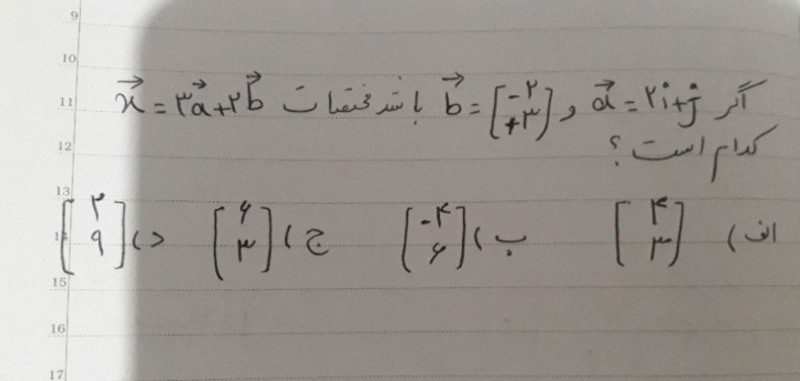 9
10
11
اگر a⃗ = ۲i+j و b⃗ = [-۲ +۳] باشد مختصات x⃗ = ۳a⃗+۲b⃗
12
کدام است ؟
13
الف) [۴ ۳] ب) [-۴ ۶] ج) [۶ ۳] د) [۲ ۹]
14
15
16
17